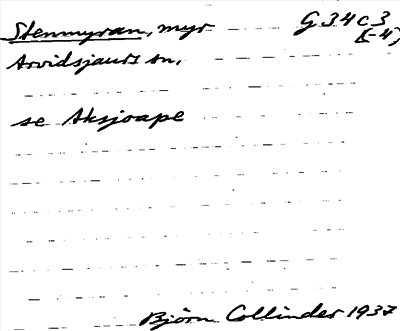 Stenmyran, myr G 34 c 3
[-4]
Arvidsjaurs sn.
se Aksjoape
Björn Collinder 1937